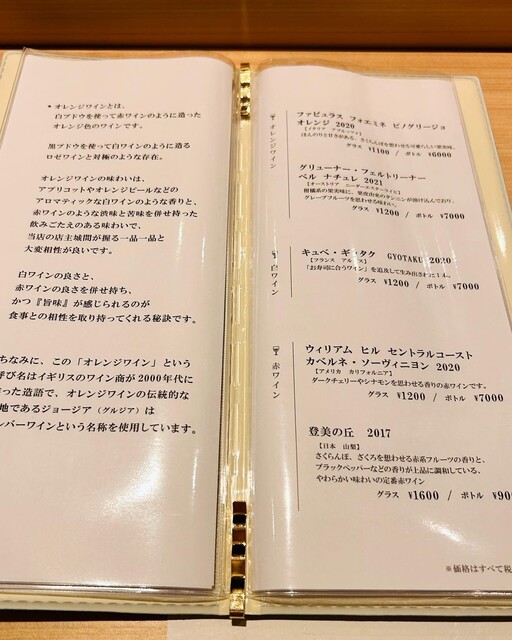 * オレンジワインとは、
白ブドウを使って赤ワインのように造った
オレンジ色のワインです。
黒ブドウを使って白ワインのように造る
ロゼワインと対極のような存在。
オレンジワインの味わいは、
アプリコットやオレンジピールなどの
アロマティックな白ワインのような香りと、
赤ワインのような渋味と苦味を併せ持った
飲みごたえのある味わいで、
当店の店主城間が握る一品一品と
大変相性が良いです。
白ワインの良さと、
赤ワインの良さを併せ持ち、
かつ『旨味』が感じられるのが
食事との相性を取り持ってくれる秘訣です。
ちなみに、この「オレンジワイン」という
呼び名はイギリスのワイン商が2000年代に
った造語で、オレンジワインの伝統的な
地であるジョージア（グルジア）は
ンバーワインという名称を使用しています。
オレンジワイン
ファビュラス フォエミネ ピノグリージョ
オレンジ 2020
【イタリア アブルッツォ】
ほんのりと甘さがある、さくらんぼを思わせる可愛らしい果実味。
グラス ¥1100 / ボトル ¥6000
グリューナー・フェルトリーナー
ペル ナチュレ 2021
【オーストリア ニーダーエスターライヒ】
柑橘系の果実味に、果皮由来のタンニンが溶け込んでおり、
グレープフルーツを思わせる味わい。
グラス ¥1200 / ボトル ¥7000
白ワイン
キュベ・ギョタク GYOTAKU 2020
【フランス アルザス】
「お寿司に合うワイン」を追及して生み出された
グラス ¥1200 / ボトル ¥7000
赤ワイン
ウィリアム ヒル セントラルコースト
カベルネ・ソーヴィニヨン 2020
【アメリカ カリフォルニア】
ダークチェリーやシナモンを思わせる香りの赤ワインです。
グラス ¥1200 / ボトル ¥7000
登美の丘 2017
【日本 山梨】
さくらんぼ、ざくろを思わせる赤系フルーツの香りと、
ブラックペッパーなどの香りが上品に調和している、
やわらかい味わいの定番赤ワイン
グラス ¥1600 / ボトル ¥90
※価格はすべて税